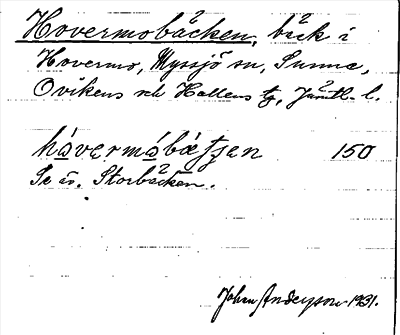 Hovermobäcken, bäck i
Hovermo, Myssjö sn, Sunne,
Ovikens och Hallens tg, Jämtl. l.
håvermåbætʃen 150
Se äv. Storbäcken.
John Andersson 1931.